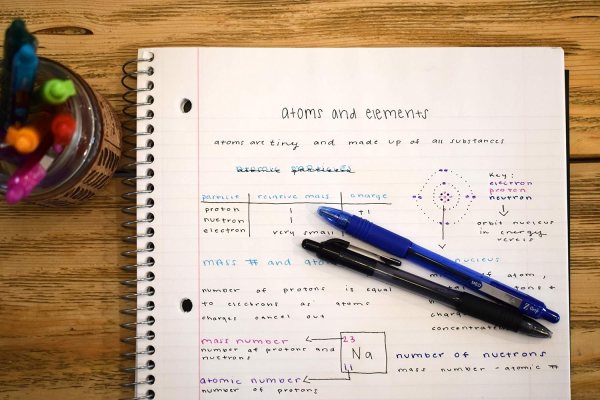 atoms and elements
atoms are tiny and made up of all substances
atomic particles
particle relative mass charge
proton 1 +1
nuetron 1
electron very small
Key:
electron
proton
neutron
orbit nucleus
in energy
levels
mass # and
nucleus
of atom,
number of protons is equal
to electrons as atoms
charges cancel out
mass number
number of protons and
nuetrons
23
Na
11
atomic number
number of protons
number of nuetrons
mass number - atomic #